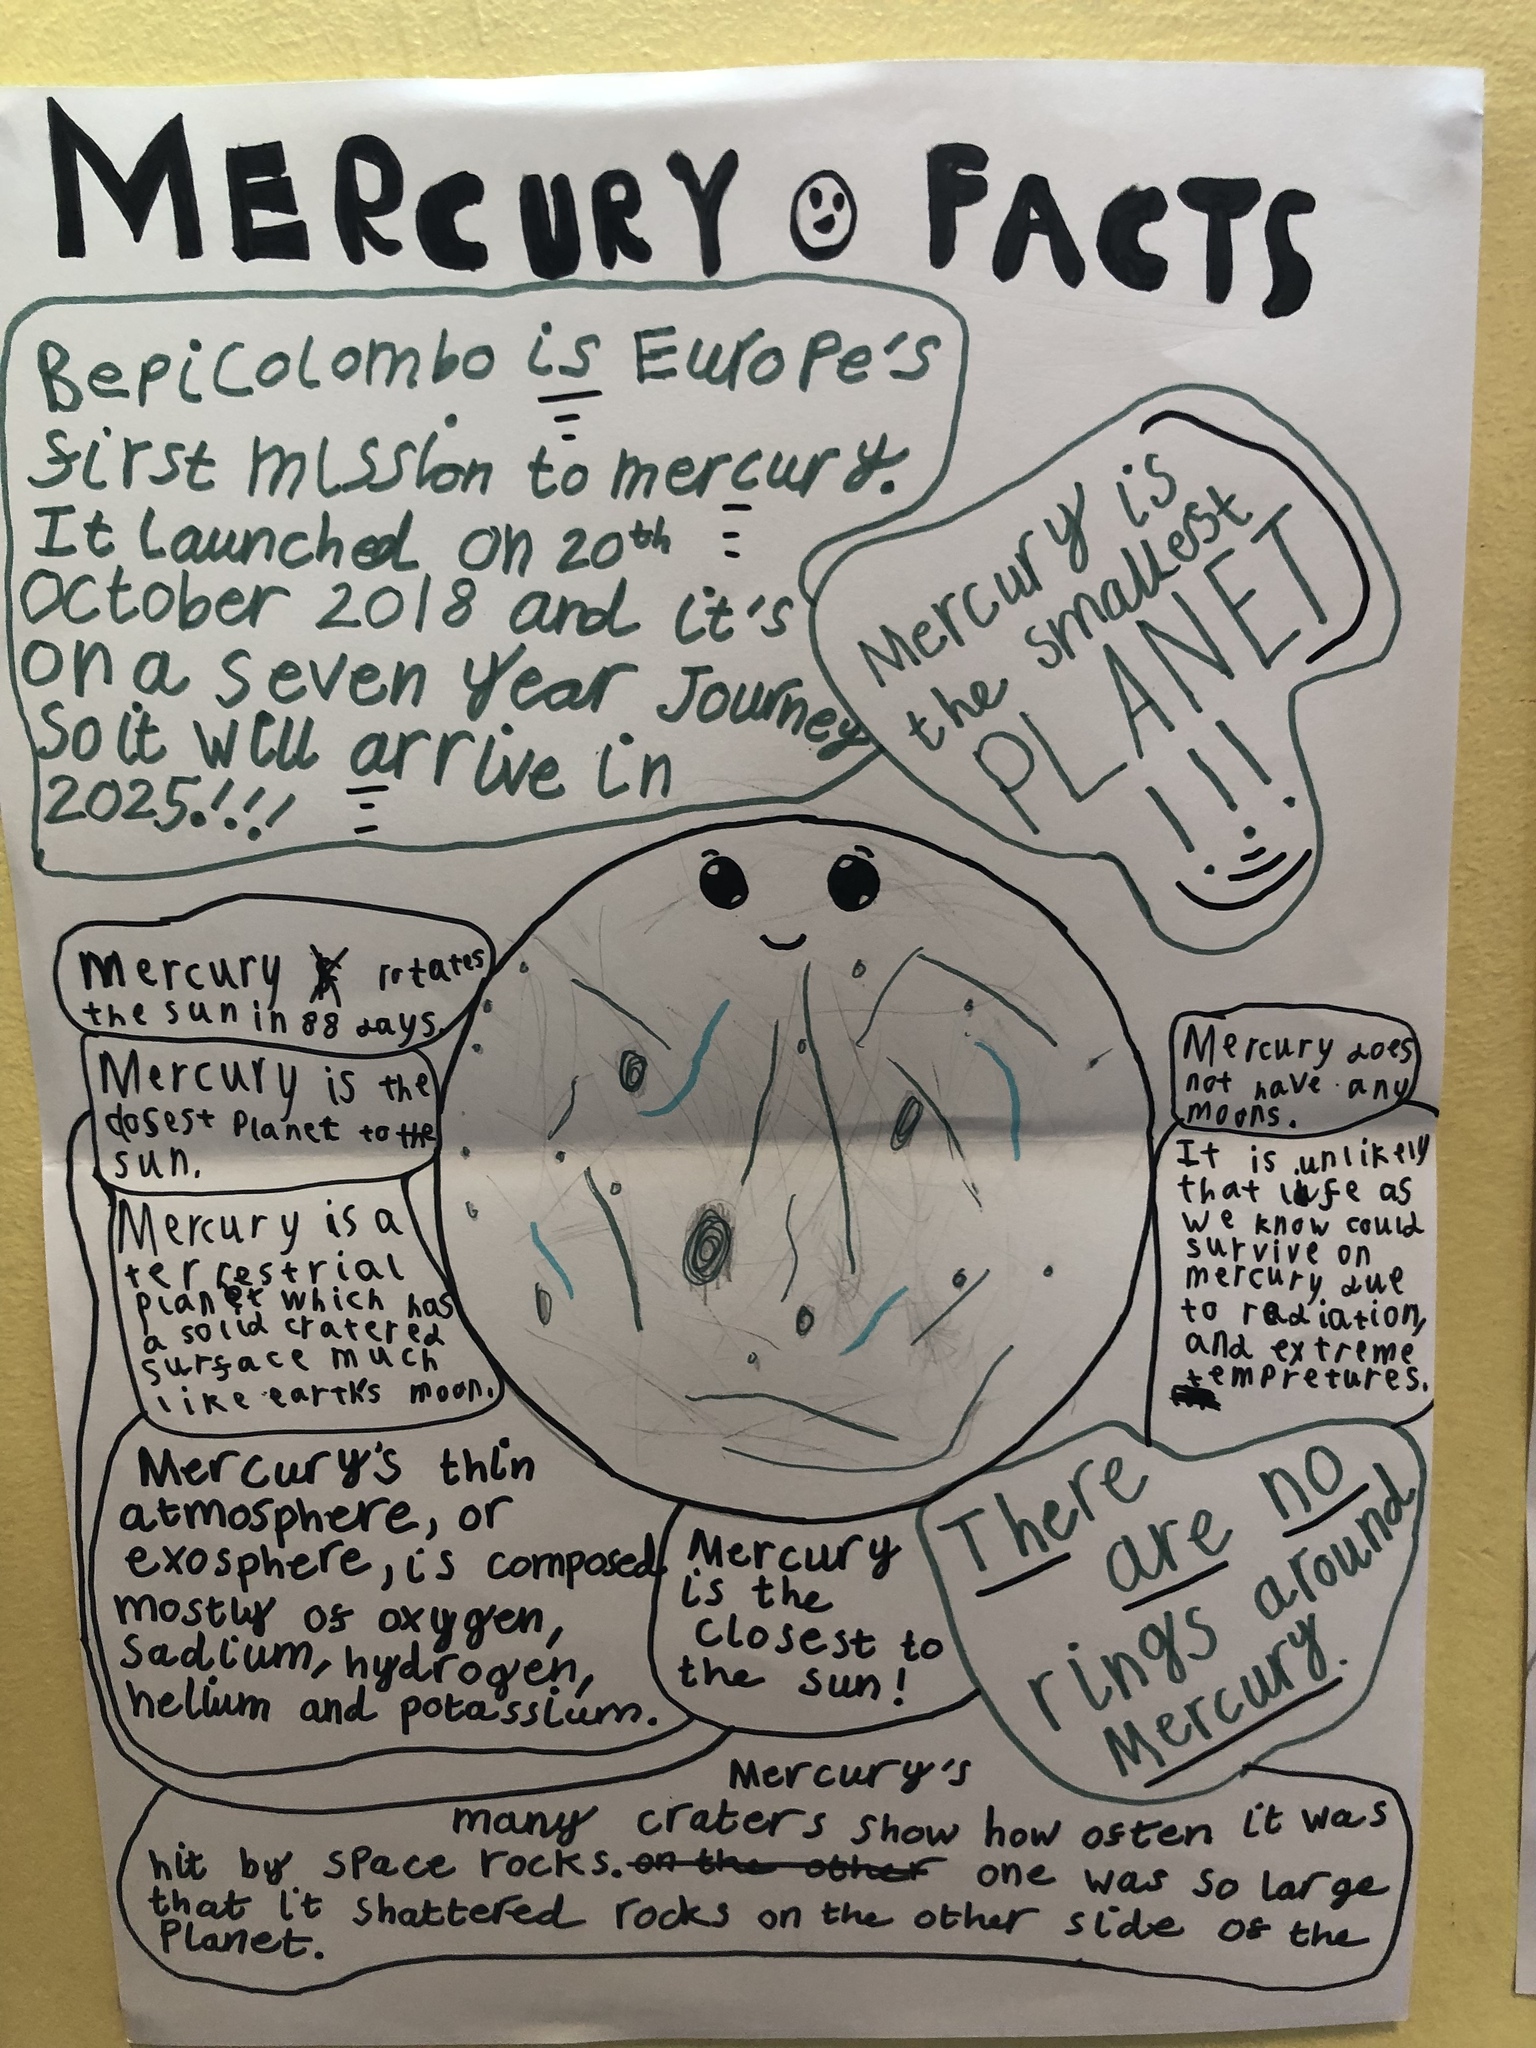 MERCURY FACTS
BepiColombo is Europe's
first mission to mercury.
It launched on 20th
October 2018 and it's
on a seven year Journey
So it will arrive in
2025!!!
Mercury is
the smallest
PLANET
!!!
Mercury rotates
the sun in 88 days.
Mercury is the
closest Planet to the
sun.
Mercury is a
terrestrial
planet which has
a solid cratered
surface much
like earth's moon.
Mercury's thin
atmosphere, or
exosphere, is composed
mostly of oxygen,
sadium, hydrogen,
helium and potassium.
Mercury
is the
closest to
the sun!
Mercury does
not have any
moons.
It is unlikely
that life as
we know could
survive on
mercury due
to radiation,
and extreme
tempretures.
There
are no
rings around
Mercury.
Mercury's
many craters show how often it was
hit by space rocks. on the other one was so large
that it shattered rocks on the other side of the
Planet.